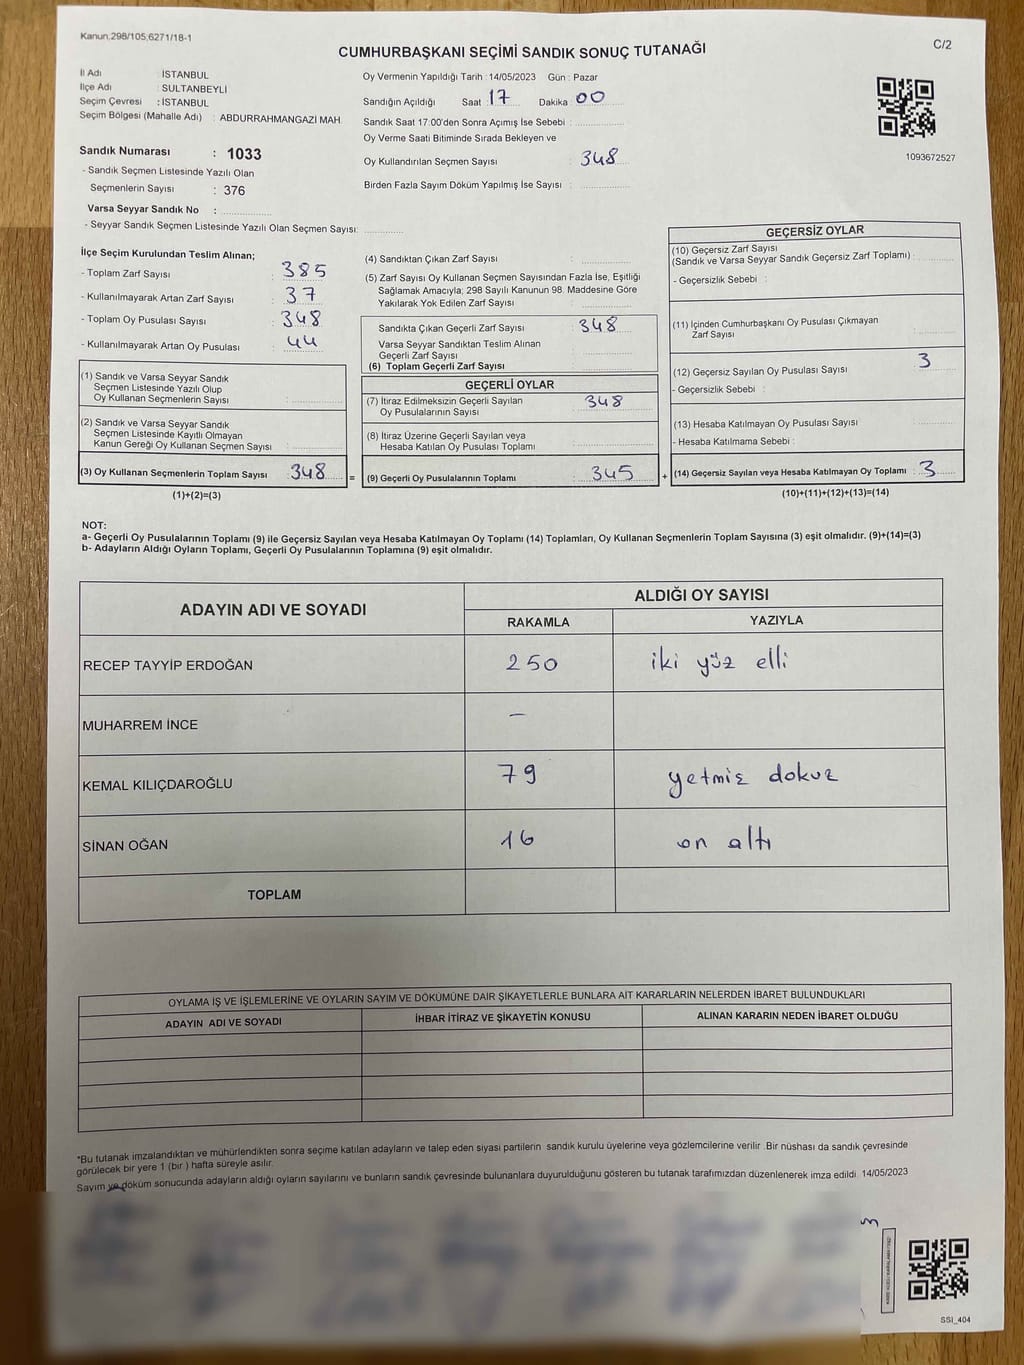 Kanun;298/105;6271/18-1
C/2
CUMHURBAŞKANI SEÇİMİ SANDIK SONUÇ TUTANAĞI
İl Adı : İSTANBUL
İlçe Adı : SULTANBEYLİ
Seçim Çevresi : İSTANBUL
Seçim Bölgesi (Mahalle Adı) : ABDURRAHMANGAZİ MAH.
Sandık Numarası : 1033
- Sandık Seçmen Listesinde Yazılı Olan
Seçmenlerin Sayısı : 376
Varsa Seyyar Sandık No :
- Seyyar Sandık Seçmen Listesinde Yazılı Olan Seçmen Sayısı:
Oy Vermenin Yapıldığı Tarih : 14/05/2023 Gün : Pazar
Sandığın Açıldığı Saat : 17 Dakika : 00
Sandık Saat 17:00'den Sonra Açımış İse Sebebi :
Oy Verme Saati Bitiminde Sırada Bekleyen ve
Oy Kullandırılan Seçmen Sayısı : 348
Birden Fazla Sayım Döküm Yapılmış İse Sayısı :
1093672527
İlçe Seçim Kurulundan Teslim Alınan;
- Toplam Zarf Sayısı : 385
- Kullanılmayarak Artan Zarf Sayısı : 37
- Toplam Oy Pusulası Sayısı : 348
- Kullanılmayarak Artan Oy Pusulası : 44
(1) Sandık ve Varsa Seyyar Sandık
Seçmen Listesinde Yazılı Olup
Oy Kullanan Seçmenlerin Sayısı :
(2) Sandık ve Varsa Seyyar Sandık
Seçmen Listesinde Kayıtlı Olmayan
Kanun Gereği Oy Kullanan Seçmen Sayısı :
(3) Oy Kullanan Seçmenlerin Toplam Sayısı : 348
(1)+(2)=(3)
(4) Sandıktan Çıkan Zarf Sayısı :
(5) Zarf Sayısı Oy Kullanan Seçmen Sayısından Fazla İse, Eşitliği
Sağlamak Amacıyla; 298 Sayılı Kanunun 98. Maddesine Göre
Yakılarak Yok Edilen Zarf Sayısı :
Sandıkta Çıkan Geçerli Zarf Sayısı : 348
Varsa Seyyar Sandıktan Teslim Alınan
Geçerli Zarf Sayısı :
(6) Toplam Geçerli Zarf Sayısı :
GEÇERLİ OYLAR
(7) İtiraz Edilmeksizin Geçerli Sayılan
Oy Pusulalarının Sayısı : 348
(8) İtiraz Üzerine Geçerli Sayılan veya
Hesaba Katılan Oy Pusulası Toplamı :
= (9) Geçerli Oy Pusulalarının Toplamı : 345 +
GEÇERSİZ OYLAR
(10) Geçersiz Zarf Sayısı
(Sandık ve Varsa Seyyar Sandık Geçersiz Zarf Toplamı) :
- Geçersizlik Sebebi :
(11) İçinden Cumhurbaşkanı Oy Pusulası Çıkmayan
Zarf Sayısı :
(12) Geçersiz Sayılan Oy Pusulası Sayısı : 3
- Geçersizlik Sebebi :
(13) Hesaba Katılmayan Oy Pusulası Sayısı :
- Hesaba Katılmama Sebebi :
(14) Geçersiz Sayılan veya Hesaba Katılmayan Oy Toplamı : 3
(10)+(11)+(12)+(13)=(14)
NOT:
a- Geçerli Oy Pusulalarının Toplamı (9) ile Geçersiz Sayılan veya Hesaba Katılmayan Oy Toplamı (14) Toplamları, Oy Kullanan Seçmenlerin Toplam Sayısına (3) eşit olmalıdır. (9)+(14)=(3)
b- Adayların Aldığı Oyların Toplamı, Geçerli Oy Pusulalarının Toplamına (9) eşit olmalıdır.
ADAYIN ADI VE SOYADI ALDIĞI OY SAYISI
RAKAMLA YAZIYLA
RECEP TAYYİP ERDOĞAN 250 iki yüz elli
MUHARREM İNCE –
KEMAL KILIÇDAROĞLU 79 yetmiş dokuz
SİNAN OĞAN 16 on altı
TOPLAM
OYLAMA İŞ VE İŞLEMLERİNE VE OYLARIN SAYIM VE DÖKÜMÜNE DAİR ŞİKAYETLERLE BUNLARA AİT KARARLARIN NELERDEN İBARET BULUNDUKLARI
ADAYIN ADI VE SOYADI İHBAR İTİRAZ VE ŞİKAYETİN KONUSU ALINAN KARARIN NEDEN İBARET OLDUĞU
*Bu tutanak imzalandıktan ve mühürlendikten sonra seçime katılan adayların ve talep eden siyasi partilerin sandık kurulu üyelerine veya gözlemcilerine verilir .Bir nüshası da sandık çevresinde
görülecek bir yere 1 (bir ) hafta süreyle asılır.
Sayım ve döküm sonucunda adayların aldığı oyların sayılarını ve bunların sandık çevresinde bulunanlara duyurulduğunu gösteren bu tutanak tarafımızdan düzenlenerek imza edildi. 14/05/2023
SSI_404